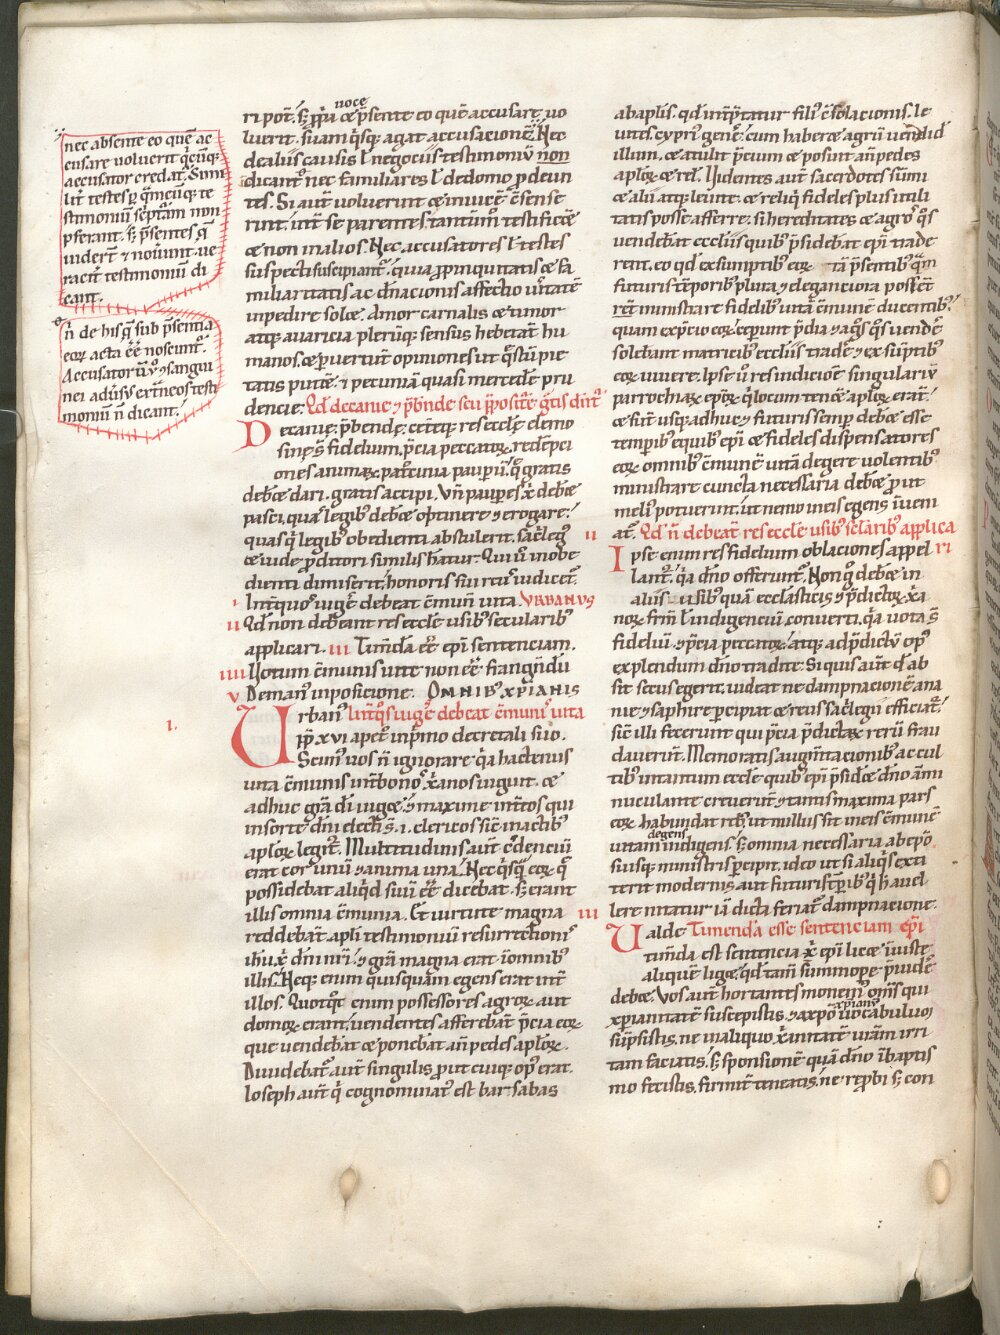 nec absente eo quē ac
cusare uoluerit q̄cūq;
accusator credat̄. Simi
lit̄ testes ꝑ q̄mcūq; te
stimoniū sc̄ptam non
ꝓferant. sꝫ p̄sentes q̄
uiderт̄ ⁊ nouunt. ue
racit̄ testimoniū di
cant.
n̄ de his q̄ sub p̄sentia
eoꝝ acta eē noscunt᷑.
Accusator ū ⁊ consangui
nei adūsū ext̄neos testi
moniū n̄ dicant.
uoce
ri pot̄. sꝫ ꝓp̄a p̄sente eo quē accusare uo
luerit. suam q̄sq; agat accusacionē. Nec
de aliis causis ł negociis testimoniū non
dicant᷑ nec familiares ł de domo ꝓdeun
tes. Si aut̄ uoluerint et inuicē c̄sense
rint. int̄ se parentes tantūm̄ testificē
et non in alios. Nec accusatores ł testes
suspecti suscipiant᷑. quia ꝓpinquitatis et fa
miliaritatis ac dn̄acionis affectio ūitatē
inpedire solet. Amor carnalis et timor
atq; auaricia plerūq; sensus hebetat hu
manos. et ꝑuertunt opiniones ut q̄stū pie
tatis putēt. ⁊ pecuniā quasi mercedē pru
dencie. Qd̄ decanie ⁊ p̄bn̄de seu p̄posite gr̄tis dn̄t᷑
Decanię. p̄bendę. cet̄eq; res ecclę demo
sinę s̄ fidelium. p̄cia peccatoꝝ. redēpci
ones animaꝝ. pat̄imnia paupū. q̄ gratis
debēt dari. gratis accipi. Vn̄ paupes x̄ debēt
pasci. qua legib; debēt optinere ⁊ erogare.
quas q̄ legib; obedientia abstulerit. sac̄leg᷒
et iude ꝓditori similis hat̄ur. Qui ū inobe
dienti dimiserit honoris sui reū iudicet᷑.
i Int̄ quos uiḡe debeat c̄mun̄ uita. VRBANVS
ii Qd̄ non debeant res eccle usib; secularib᷒
applicari. iii Timēda eē epī sentenciam.
iiii Uotum c̄munis uite non eē frangn̄dū
v De man᷒ inposicione. OMNIB᷒ XPIANIS
i.
Urban᷒ Int̄ q̄s uiḡe debeat c̄mun᷒ uita
pp̄ xvi apc̄ inp̄mo decretali suo.
Scim᷒ uos n̄ ignorare q̄a hactenus
uita c̄munis int̄ bonos x̄anos uiguit. et
adhuc gr̄a di uiget. ⁊ maxime int̄ eos qui
in sorte dn̄i electi s̄. i. clericos sic̄ in actib᷒
aplōꝝ legit᷑. Multitudinis aut̄ c̄denciū
erat cor unū ⁊ anima una. Nec q̄sq̄ eoꝝ q̄
possidebat aliq̄d suū eē dicebat. sꝫ erant
illis omnia c̄munia. Et uirtute magna
reddebāt apli testimoniū resurrectioni᷒
ihu x̄ dn̄i nr̄i. ⁊ gr̄a magna erat in omnib᷒
illis. Neq; enim quisquam egens erat int̄
illos. Quotq̄t enim possessores agroꝝ aut
domoꝝ erant. uendentes afferebāt p̄cia eoꝝ
que uendebāt et ponebāt an̄ pedes aplōꝝ.
Diuidebāt᷑ aut̄ singulis ꝓut cuiq; op᷒ erat.
Ioseph aut̄ q̄ cognominat᷒ est barsabas
ab aplis. qd̄ int̄p̄tatur fili᷒ c̄solacionis. le
uites cypri᷒ gene᷒. cum haberet agrū uendid
illum. et attulit p̄cium et posuit an̄ pedes
aplōꝝ et rel̄. Uidentes aut̄ sacerdotes sūmi
et alii atq; leuite. et reliq̄ fideles plus utili
tatis posse afferre. si hereditates et agros q̄s
uendebāt ecclīis quib᷒ p̄sidebāt epī trade
rent. eo qd̄ ex sumptib᷒ eoꝝ tā p̄sentib᷒ q̄m
futuris t̄porib᷒ plura ⁊ eleganciora possēt
rēt ministrare fidelib᷒ uitā c̄munē ducentib᷒
quam ex p̄cio eoꝝ. ceperunt p̄dia ⁊ aḡs q̄s uendē
solebant matricib᷒ ecclīis tradē. ⁊ ex sūptib᷒
eoꝝ uiuere. Ipse ū res in dicione singulariū
parrochiaꝝ epōꝝ q̄ locum tenēt aplōꝝ. erant᷑.
et sūt usq; adhuc ⁊ futuris semp̄ debēt esse
temp̄ib᷒ e quib᷒ epī et fideles dispensatores
eoꝝ omnib᷒ c̄munē uitā degere uolentib᷒
ministrare cuncta necessaria debēt prout
meli᷒ potuerint. ut nemo in eis egens īueni
at᷑. Qd̄ n̄ debeāt res eccle usib᷒ sc̄larib᷒ applica
ii
ri
Ipse enim res fidelium oblaciones appel
lant᷑. q̄a dn̄o offerunt᷑. Non g̊ debēt in
aliis usib᷒ quā ecclasticis ⁊ p̄dictoꝝ x̄a
noꝝ frm̄ ł indigenciū conuerti. q̄a uota s̄
fideliū. ⁊ p̄cia peccatoꝝ. atq; ad p̄dictū op᷒
explendum dn̄o tradite. Si quis aut̄ q̄d ab
sit secus egerit. uideat ne dampnacionē ana
nie ⁊ saphire percipiat et reus sac̄legii efficiat᷑.
sic̄ illi fecerunt qui p̄cia p̄dictaꝝ rerū frau
dauerunt. Memoratis augm̄tacionib᷒ ac cul
tib᷒ in tantum eccle quib᷒ epī p̄sidēt dn̄o ānni
nuculante creuerūt. ⁊ tantis maxima pars
eoꝝ habundat reb᷒ ut nullus sit in eis c̄munē
degens
uitam indigens. sꝫ omnia necessaria ab epō
suisq; ministris percipit. ideo ut si aliq̄s exti
terit modernis aut futuris t̄porib᷒ q̄ h auel
lere nitatur. iā dicta feriat᷑ dampnacione.
iii
Ualde Timenda esse sentenciam epī
timēda est sentencia x̄ epī licet iniuste
aliquē liget. qd̄ tam̄ summope p̄uidē
debēt. Vos aut̄ hortantes monem᷒ om̄s qui
xpianū
xpianitatē suscepistis. ⁊ a xpo uocabulum
sūpsistis. ne in aliquo x̄anitatē uram irri
tam faciatis. sꝫ sponsionē quā dn̄o in baptis
mo fecistis. firmit̄ teneatis. ne reprobi sꝫ con